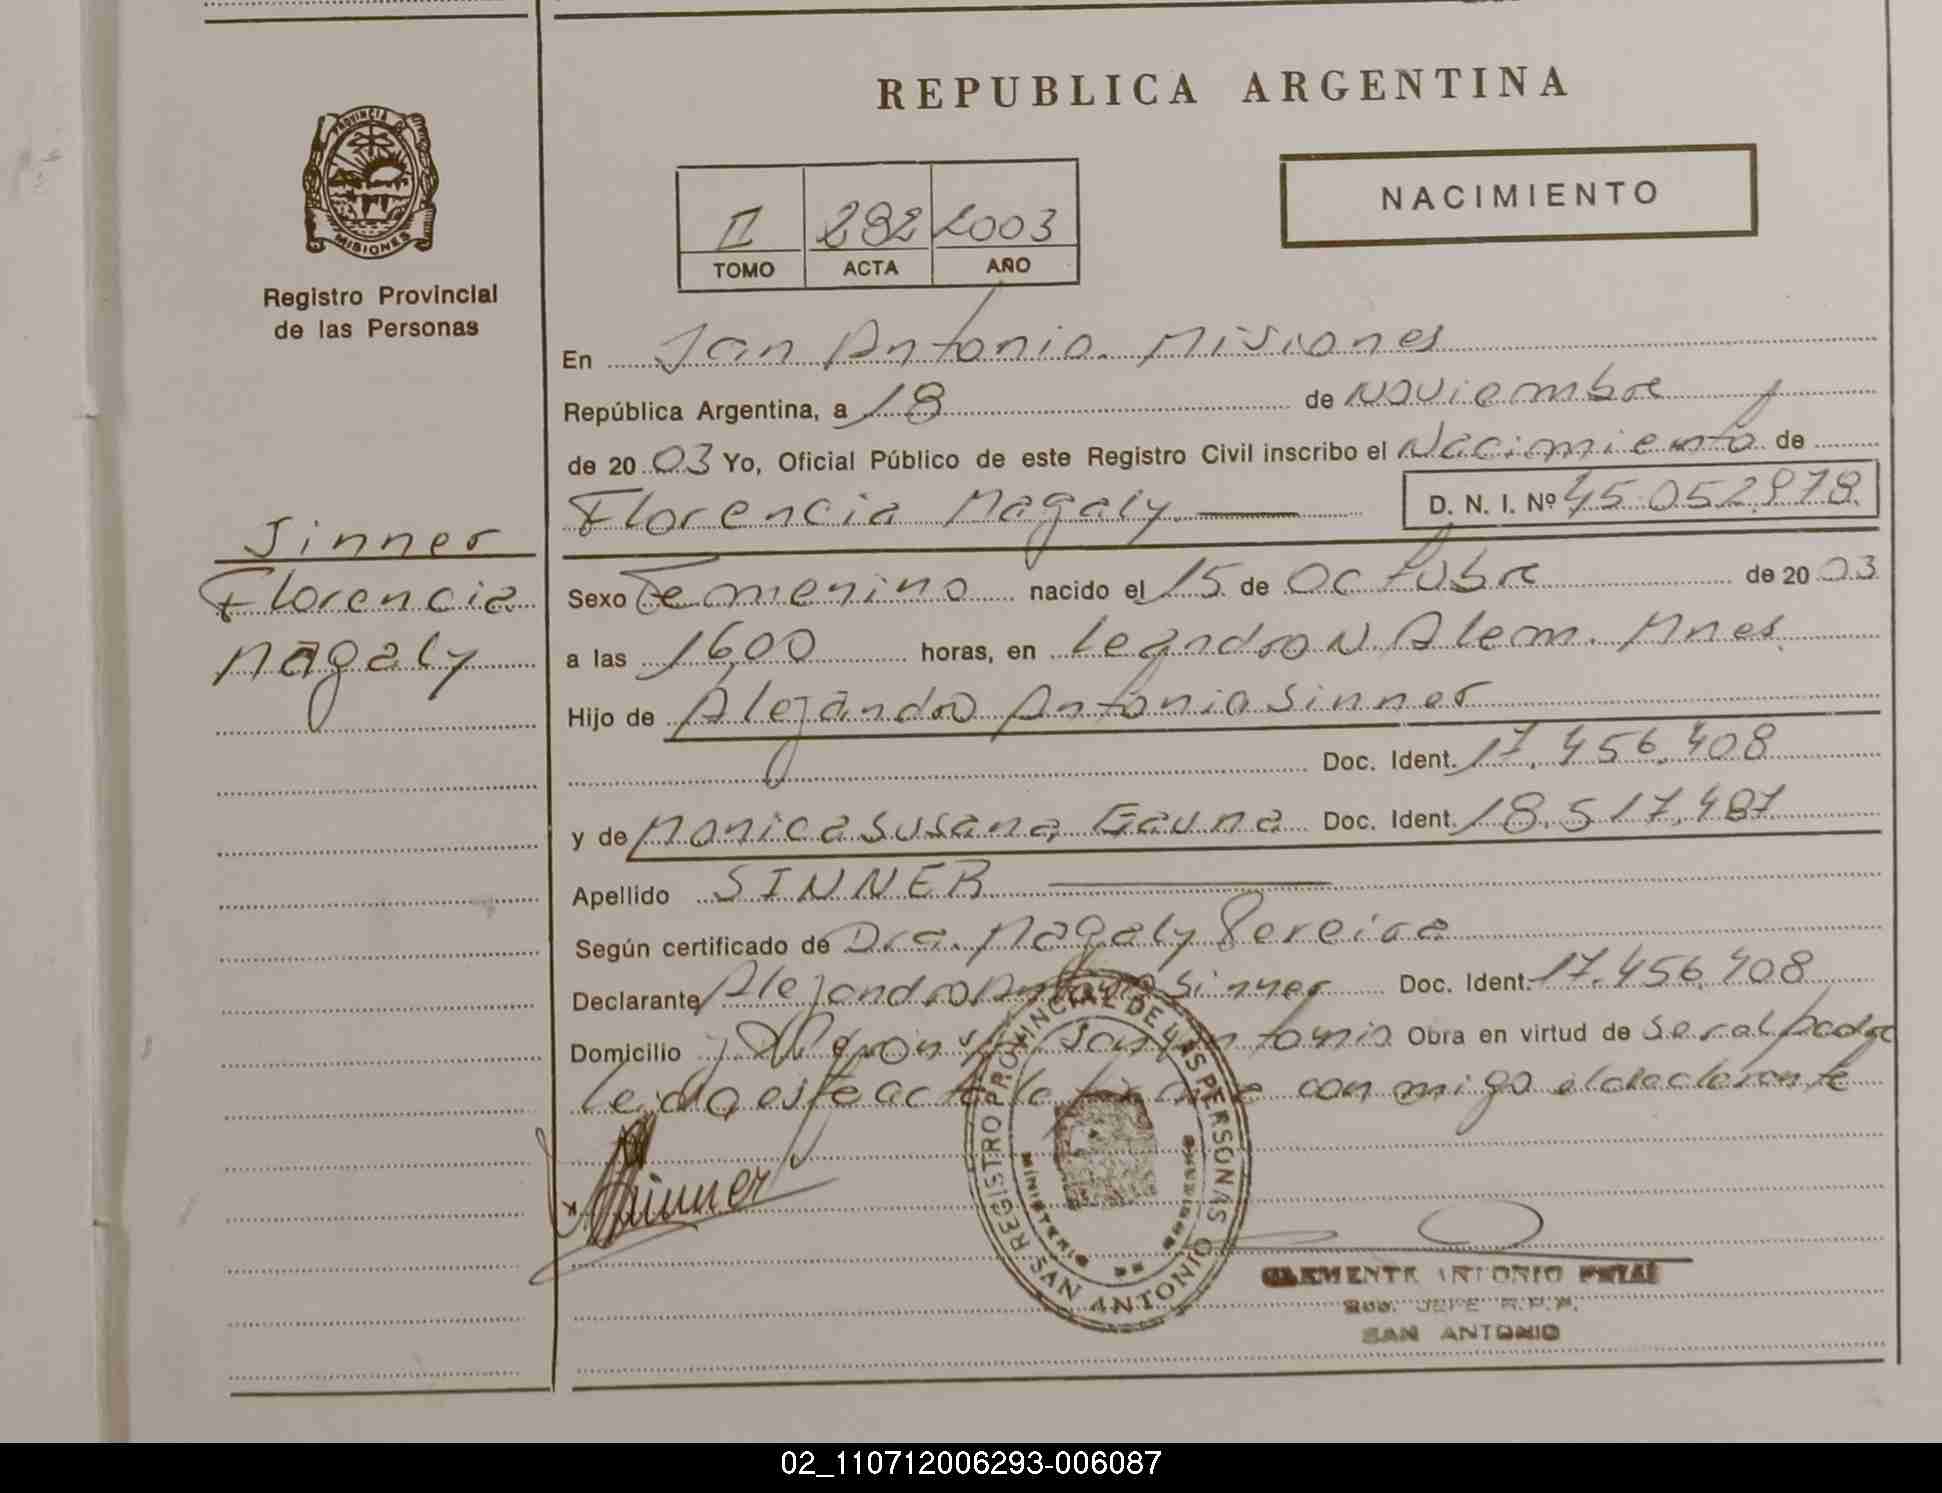 REPUBLICA ARGENTINA
PROVINCIA DE
MISIONES
Registro Provincial
de las Personas
NACIMIENTO
II 282 2003
TOMO ACTA AÑO
En San Antonio. Misiones
República Argentina, a 18 de Noviembre
de 2003 Yo, Oficial Público de este Registro Civil inscribo el Nacimiento de
Florencia Magaly D. N. I. Nº 45.052.978
Sinner
Florencia
Magaly
Sexo Femenino nacido el 15 de Octubre de 2003
a las 16,00 horas, en Leandro N. Alem. Mnes.
Hijo de Alejandro Antonio Sinner
Doc. Ident. 17.456.408
y de Monica Susana Gauna Doc. Ident. 18.517.487
Apellido SINNER
Según certificado de Dra. Magaly Pereira
Declarante Alejandro Antonio Sinner Doc. Ident. 17.456.408
Domicilio San Antonio Obra en virtud de ser al padre
Leida este acta la conmigo el declarante
Sinner
REGISTRO PROVINCIAL DE LAS PERSONAS
MINISTERIO
SAN ANTONIO
CLEMENTE ANTONIO
JEFE R.P.P.
SAN ANTONIO
02_110712006293-006087